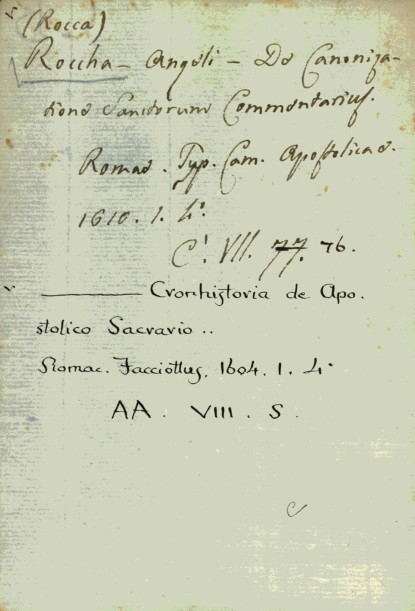 (Rocca)
Roccha - Angeli - De Canoniza-
tione Sanctorum Commentarius.
Romae. Typ. Cam. Apostolicae.
1610. 1. 4.º
C¹. VII. 77. 76.
——— Cronhistoria de Apo.
stolico Sacrario..
Romae. Facciottus, 1604. 1. 4º
AA. VIII. S.